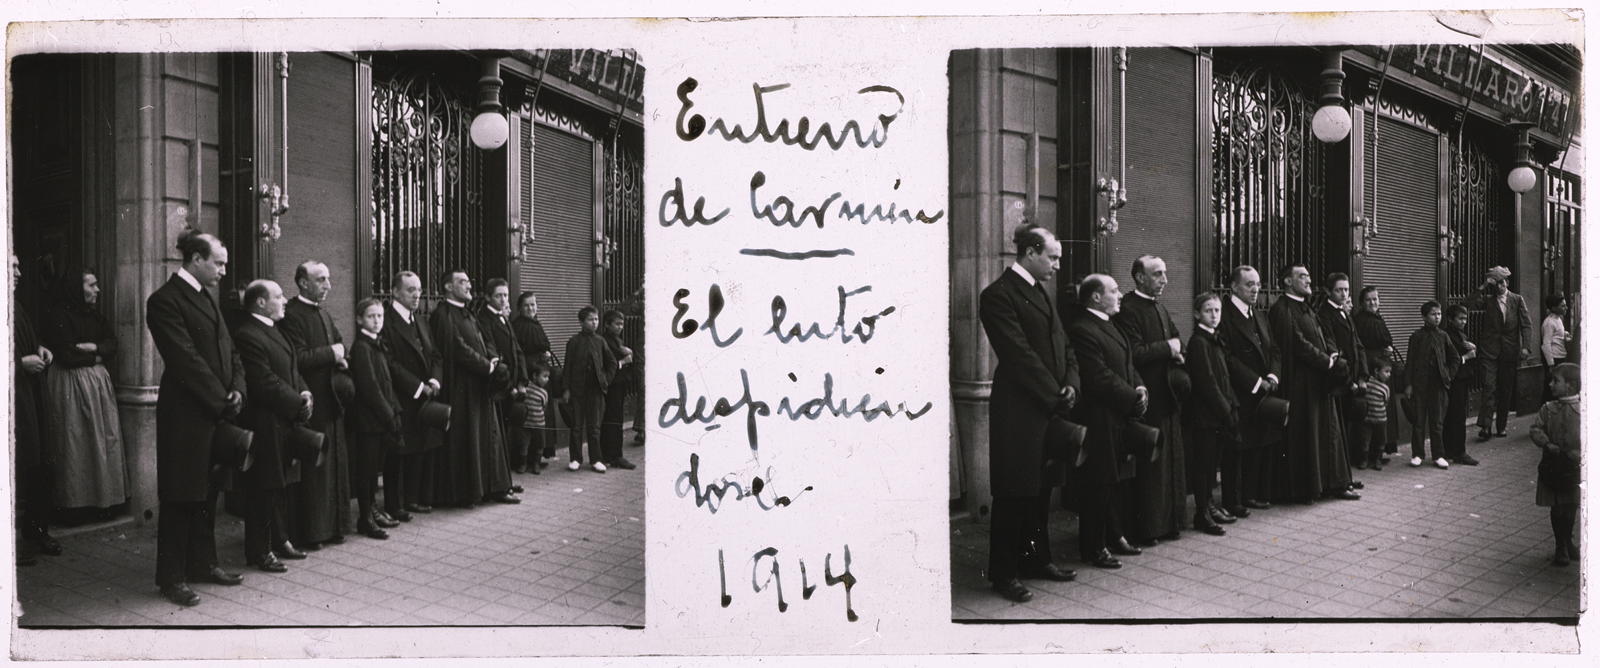 VILLA
Entierro
de Carmen
El luto
despidien
dose
1914
VILLARO